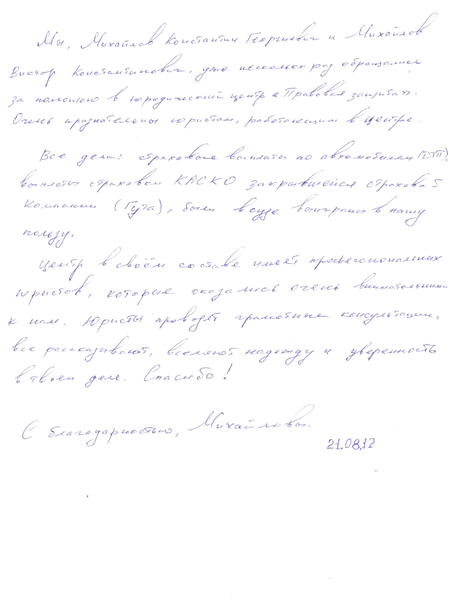 Мы, Михайлов Константин Георгиевич и Михайлов
Виктор Константинович, уже несколько раз обращались
за помощью в юридический центр «Правовая защита».
Очень признательны юристам, работающим в центре.
Все дела: страховые выплаты по автомобилям (ДТП),
выплаты страховки КАСКО закрывшейся страховой
компании (Гута), были в суде выиграны в нашу
пользу.
Центр в своём составе имеет профессиональных
юристов, которые оказались очень внимательными
к нам. Юристы проводят грамотные консультации,
все рассказывают, вселяют надежду и уверенность
в твоем деле. Спасибо!
С благодарностью, Михайловы.
21.08.12